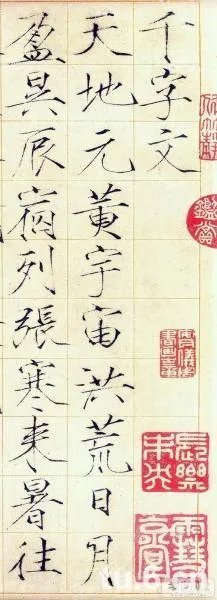 千字文
天地元黃宇宙洪荒日月
盈昃辰宿列張寒来暑往
鑑賞